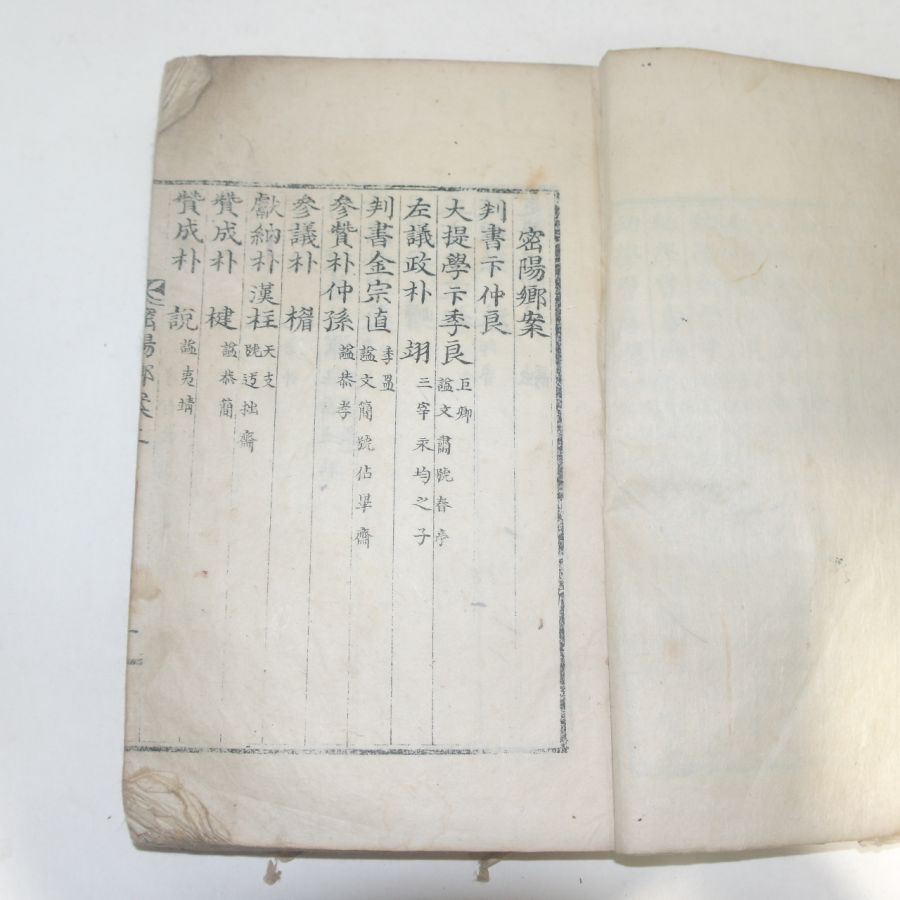 密陽鄉案
判書卞仲良
大提學卞季良 巨卿 謚文肅號春亭
左議政朴翊 三宰永均之子
判書金宗直 季昷 謚文簡號佔畢齋
參贊朴仲孫 謚恭孝
參議朴楣
獻納朴漢柱 天支 號迃拙齋
贊成朴楗 謚恭簡
贊成朴說 謚夷靖
密陽鄉案